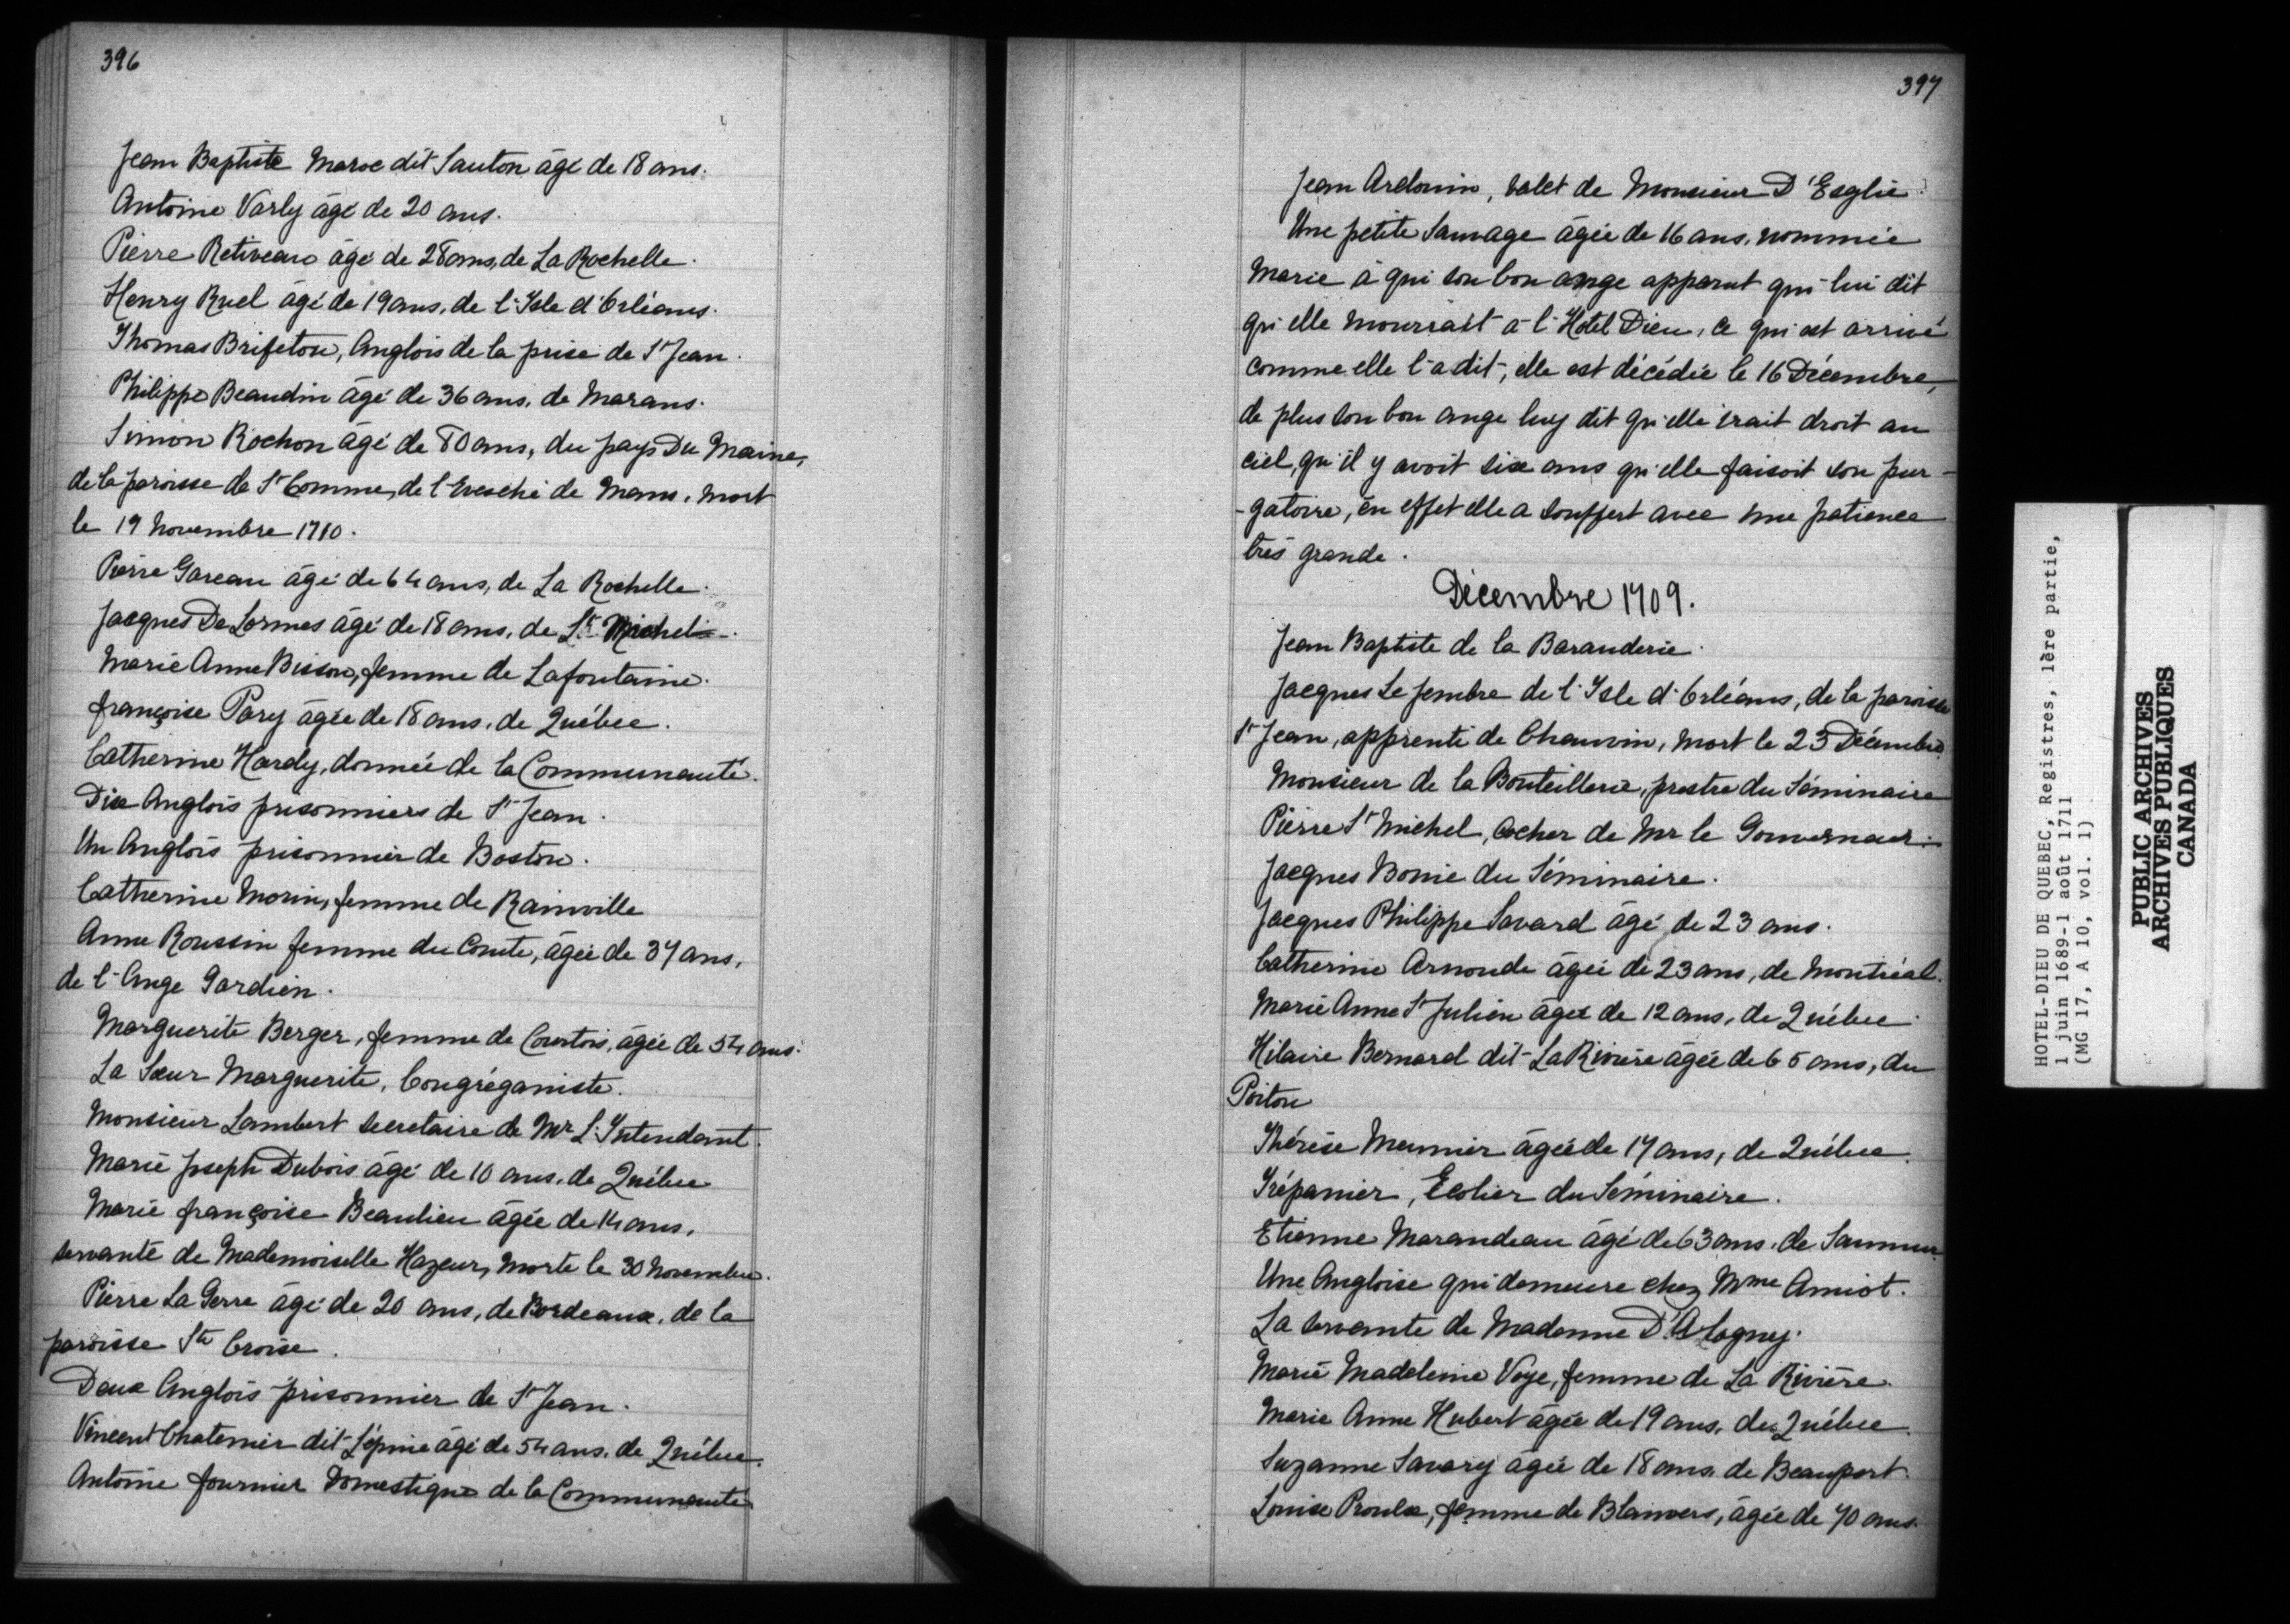 396
Jean Baptiste Maroc dit Sauton âgé de 18 ans.
Antoine Varly âgé de 20 ans.
Pierre Retiveau âgé de 28 ans, de La Rochelle.
Henry Ruel âgé de 19 ans, de l'Isle d'Orléans.
Thomas Brifeton, Anglois de la prise de St Jean.
Philippe Beaudin âgé de 36 ans, de Marans.
Simon Rochon âgé de 80 ans, du pays Du Maine,
de la paroisse de St Comme, de l'Evesché de Mans, mort
le 19 Novembre 1710.
Pierre Gareau âgé de 64 ans, de La Rochelle.
Jacques De Lormes âgé de 18 ans, de St Michel.
Marie Anne Bisson, femme de Lafontaine.
françoise Pary âgée de 18 ans, de Québec.
Catherine Hardy, donnée de la Communauté.
Dix Anglois prisonniers de St Jean.
Un Anglois prisonnier de Boston.
Catherine Morin, femme de Rainville
Anne Roussin femme du Comte, âgée de 37 ans,
de l'Ange Gardien.
Marguerite Berger, femme de Courtois, âgée de 54 ans.
La Sœur Marguerite, Congréganiste.
Monsieur Lambert secretaire de Mr L'Intendant.
Marie Joseph Dubois âgé de 10 ans, de Québec
Marie françoise Beaulieu âgée de 14 ans,
servante de Mademoiselle Hazeur, morte le 30 Novembre.
Pierre La Serre âgé de 20 ans, de Bordeaux, de la
paroisse Ste Croise.
Deux Anglois prisonnier de St Jean.
Vincent Chatenier dit Lépine âgé de 54 ans, de Québec.
Antoine fournier Domestique de la Communauté
397
Jean Ardouin, valet de Monsieur D'Esglie.
Une petite Sauvage âgée de 16 ans, nommée
Marie à qui son bon ange apparut qui lui dit
qu'elle mourrait à l'Hotel Dieu, ce qui est arrivé
comme elle l'a dit, elle est décédée le 16 Décembre,
de plus son bon ange luy dit qu'elle irait droit au
ciel, qu'il y avoit six ans qu'elle faisoit son pur-
-gatoire, en effet elle a souffert avec une patience
très grande.
Décembre 1709.
Jean Baptiste de la Barauderie.
Jacques Le fembre de l'Isle d'Orléans, de la paroisse
St Jean, apprenti de Chauvin, mort le 25 Décembre.
Monsieur de la Bouteillerie, prestre du Séminaire
Pierre St Michel, cocher de Mr le Gouverneur.
Jacques Bonie du Séminaire.
Jacques Philippe Savard âgé de 23 ans.
Catherine Arnonde âgée de 23 ans, de Montréal.
Marie Anne St Julien âgée de 12 ans, de Québec.
Hilaire Bernard dit La Rivière âgée de 65 ans, du
Poitou
Thérèse Meunier âgée de 17 ans, de Québec.
Trépanier, Ecolier du Séminaire.
Etienne Marandeau âgé de 63 ans, de Saumur
Une Angloise qui demeure chez Mme Amiot.
La servante de Madame D'Alogny.
Marie Madeleine Voye, femme de La Rivière.
Marie Anne Hubert âgée de 19 ans, de Québec.
Suzanne Savary âgée de 18 ans, de Beauport.
Louise Proulx, femme de Blanvers, âgée de 70 ans.
HOTEL-DIEU DE QUEBEC, Registres, 1ère partie,
1 juin 1689-1 août 1711
(MG 17, A 10, vol. 1)
PUBLIC ARCHIVES
ARCHIVES PUBLIQUES
CANADA